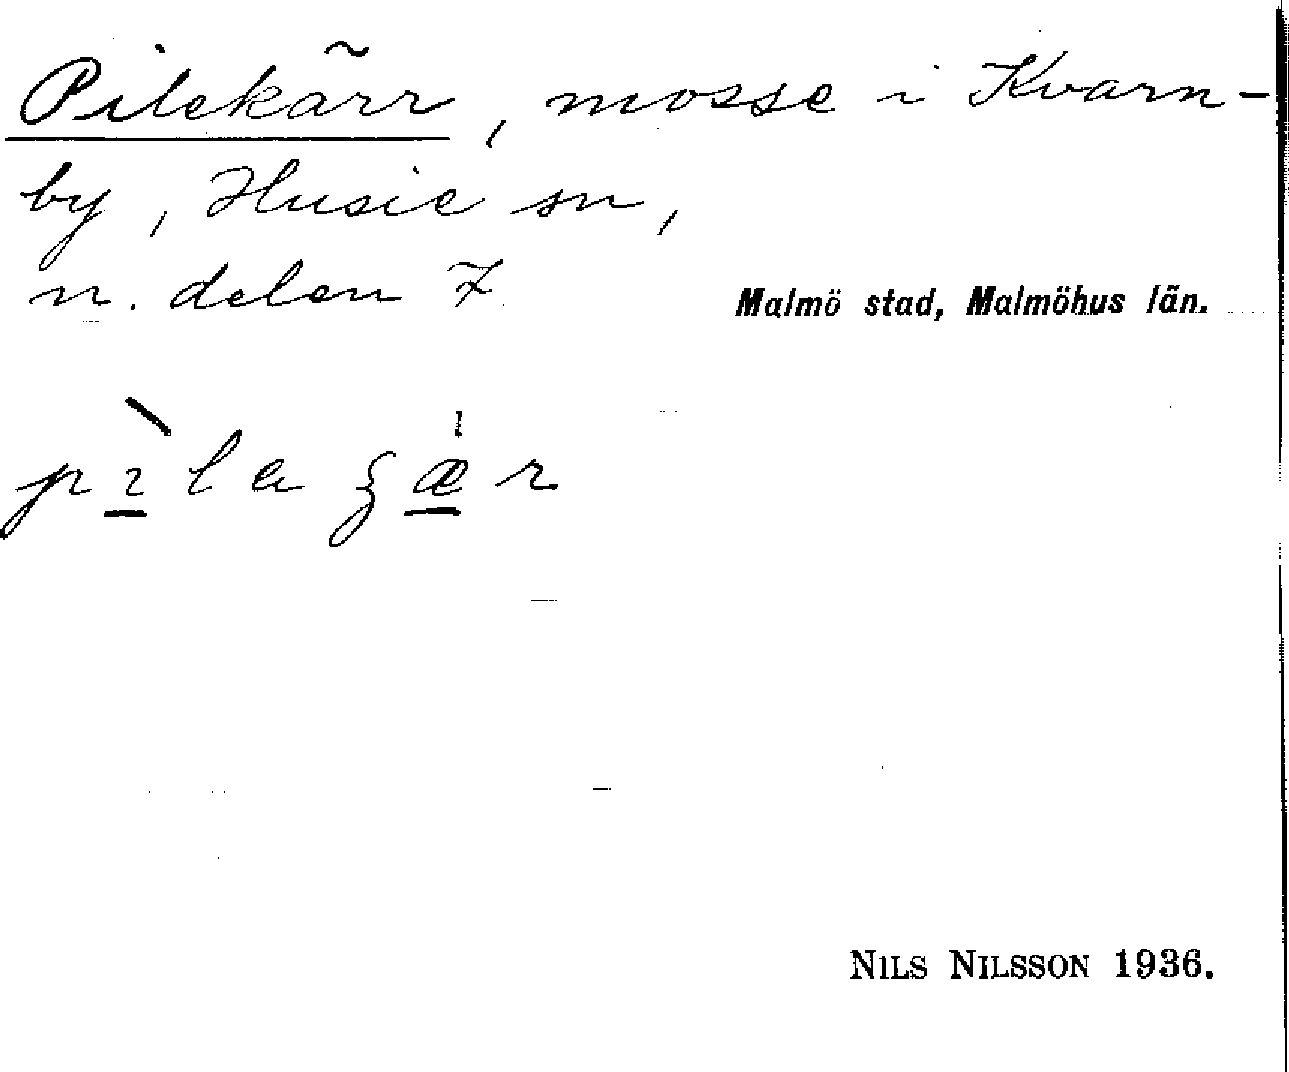 Pilekärr, mosse i Kvarn-
by, Husie sn,
n. delen 7
Malmö stad, Malmöhus län.
NILS NILSSON 1936.